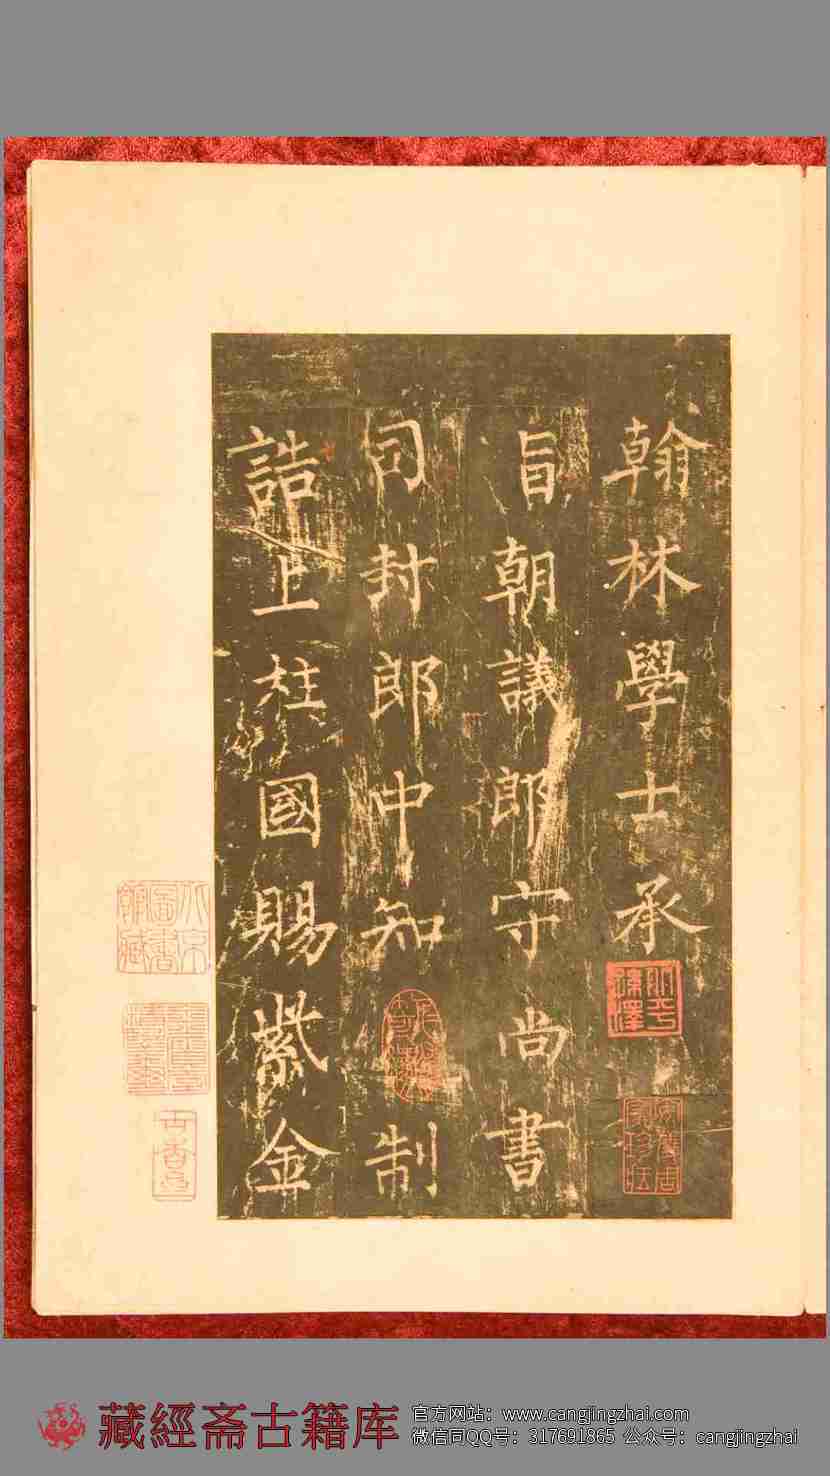 翰林學士承
旨朝議郎守尚書
司封郎中知制
誥上柱國賜紫金
藏經斋古籍库
官方网站：www.cangjingzhai.com
微信同QQ号：317691865 公众号：cangjingzhai